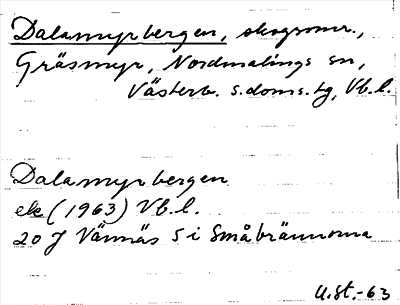 Dalamyrbergen, skogsomr.,
Gräsmyr, Nordmalings sn,
Västerb. s. doms. tg, Vb. l.
Dalamyrbergen
ek (1963) Vb. l.
20 J Vännäs S i Småbrännorna
U.St.-63